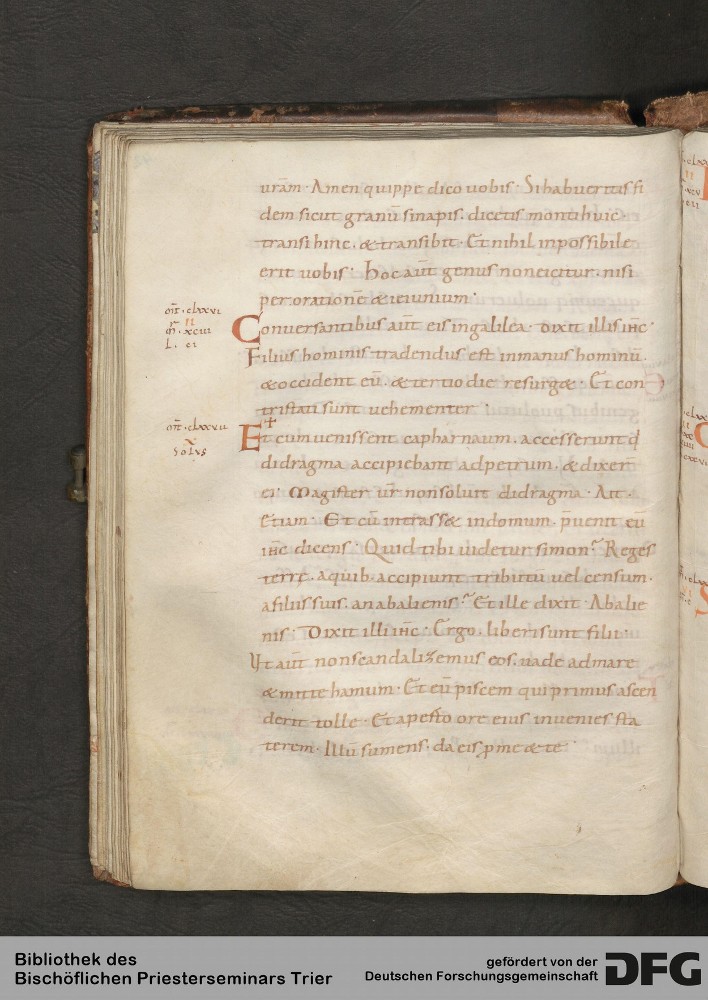 urām· Amen quippe dico uobis· Si habueritis fi
dem sicut granū sinapis· dicetis monti huic·
transi hinc· & transibit· Et nihil inpossibile
erit uobis· Hoc aūt genus non eicitur· nisi
per orationē & ieiunium·
mr̄· clxxvi
xciii
L· ci
Conuersantibus aūt eis in galilea· dixit illis ihc̄·
Filius hominis tradendus est in manus hominū·
& occident eū· & tertio die resurg&· Et con
tristati sunt uehementer·
clxxvii
x
Solus
Et cum uenissent capharnaum· accesserunt q̄
didragma accipiebant ad petrum· & dixer̄
ei· Magister ur̄ non soluit didragma· Ait·
Etiam· Et cū intrass& in domum· p̄uenit eū
ihc̄ dicens· Quid tibi uidetur simon? Reges
terre· a quib· accipiunt tributū uel censum·
a filiis suis· an ab alienis? Et ille dixit· Ab alie
nis· Dixit illi ihc̄· Ergo· liberi sunt filii·
Ut aūt non scandalizemus eos· uade ad mare
& mitte hamum· Et eū piscem qui primus ascen
derit tolle· Et aperto ore eius inuenies sta
terem· Illū sumens· da eis p me & te·
Bibliothek des
Bischöflichen Priesterseminars Trier
gefördert von der
Deutschen Forschungsgemeinschaft
DFG